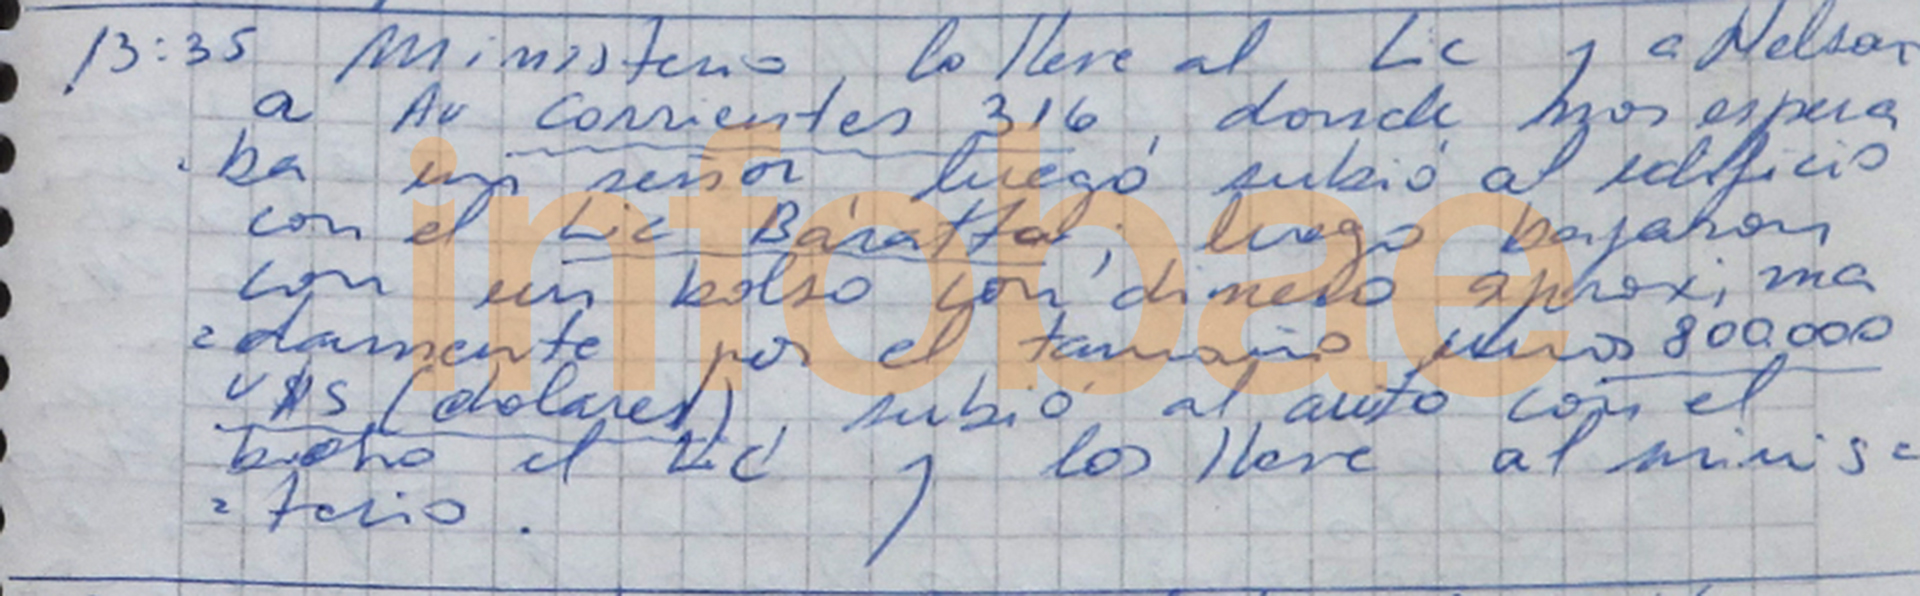 13:35 Ministerio, lo lleve al Lic y a Nelson
a Av Corrientes 316, donde nos espera
ba un señor luego subió al edificio
con el Lic Baratta, luego bajaron
con un bolso con dinero aproxima
=damente por el tamaño unos 800.000
U$S (dolares), subió al auto con el
bolso el Lic y los lleve al minis=
=terio.
infobae